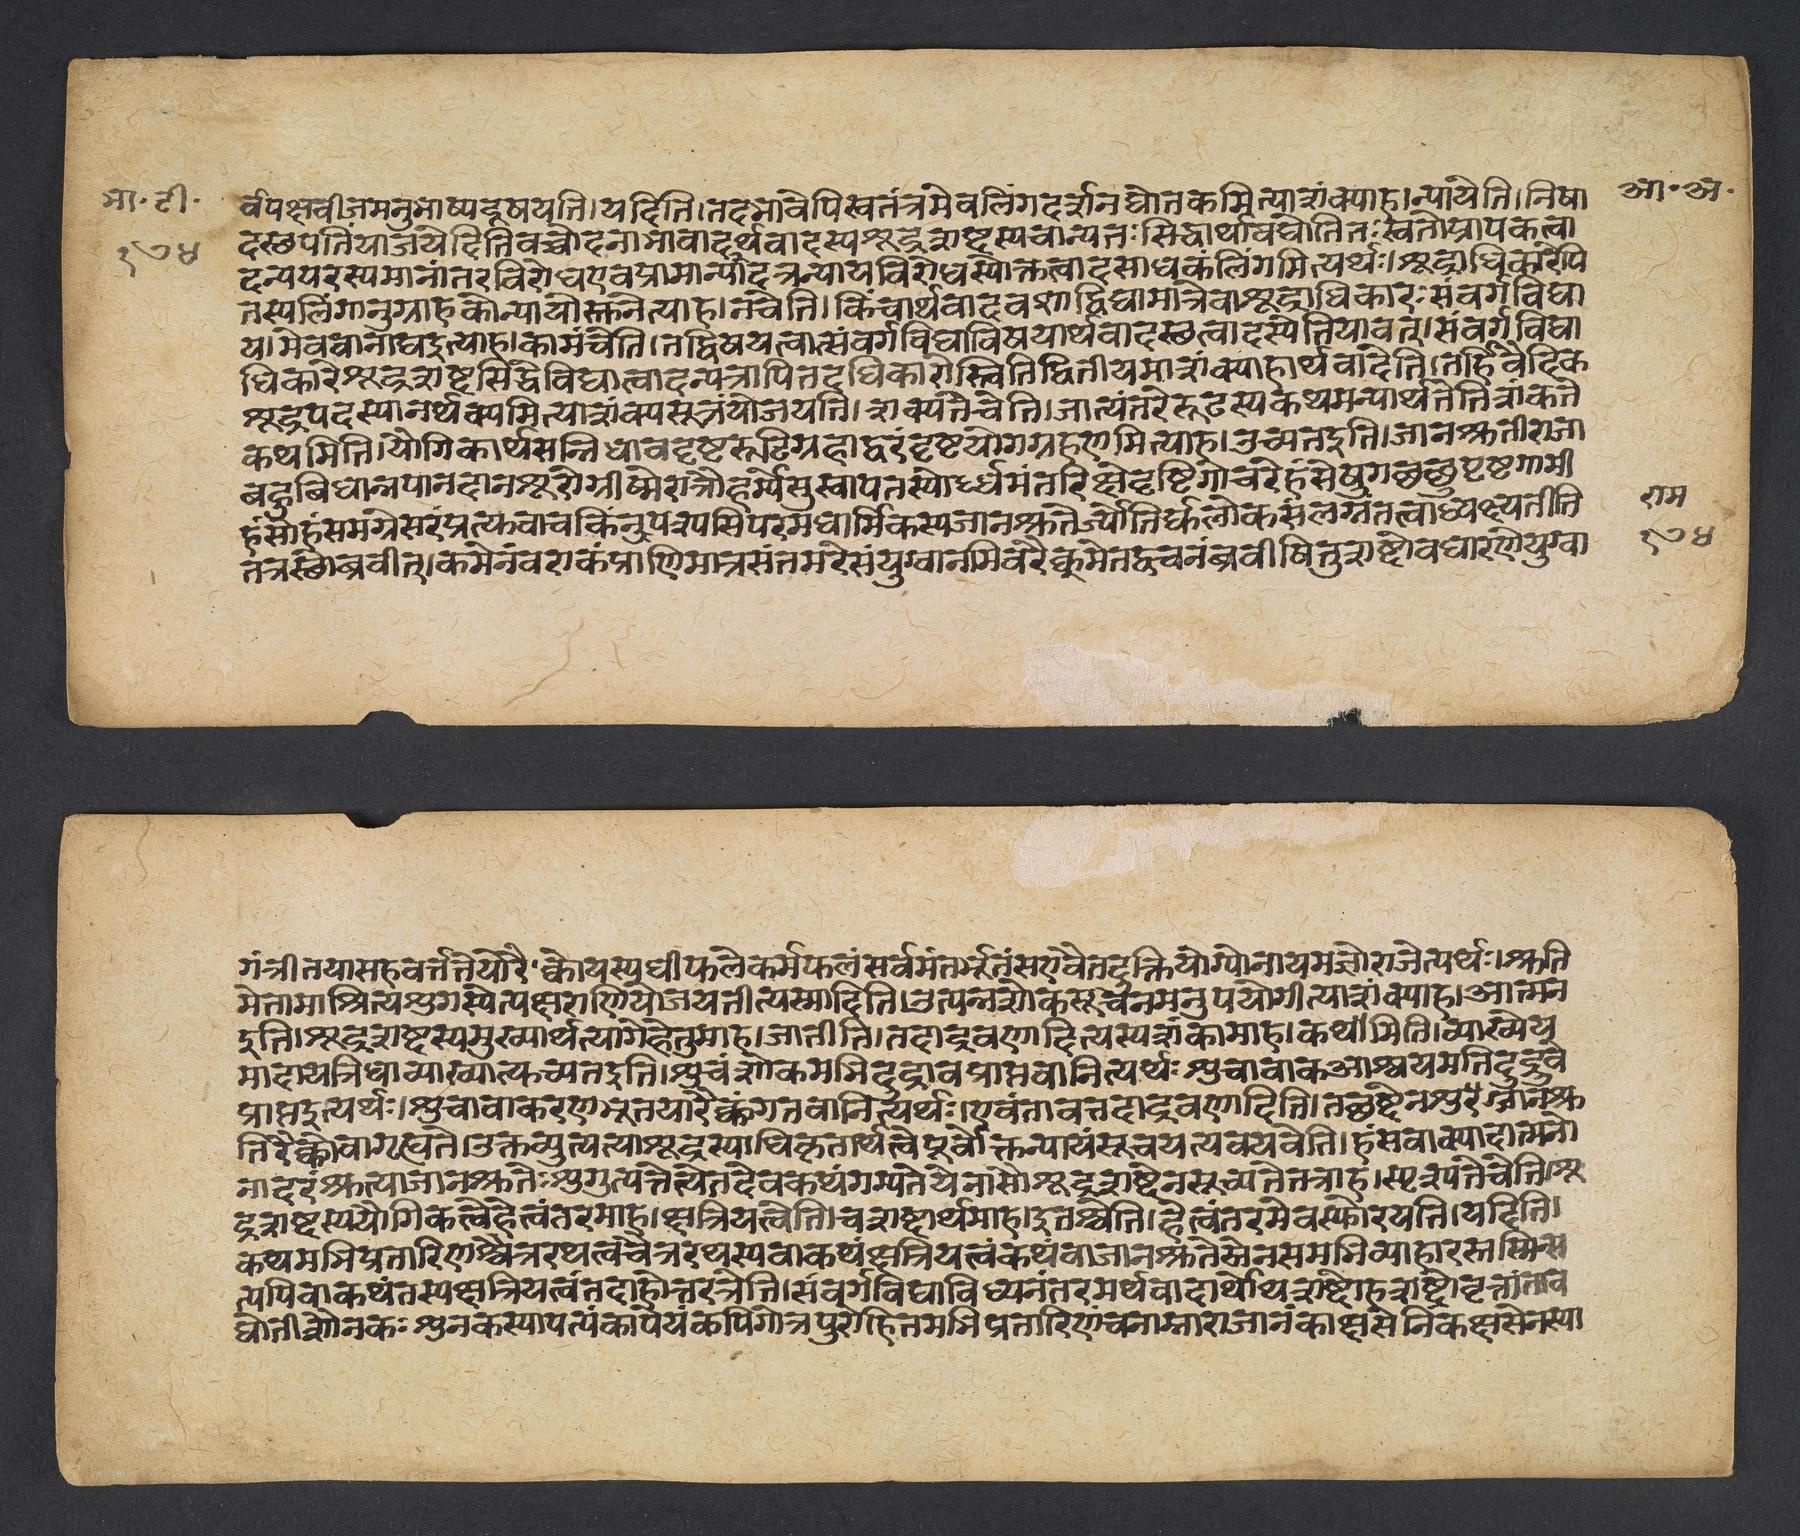 भा॰ टी॰
१७४
आ॰ अ॰
र्वपक्षबीजमनुभाष्यदूषयति।यदिति।तदभावेपिस्वतंत्रमेवलिंगदर्शनद्योतकमित्याशंक्याह।न्यायेति।निषा
दस्थपतिंयाजयेदितिवच्चोदनाभावादर्थवादस्यशूद्रशब्दस्यचान्यतःसिद्धार्थावद्योतिनःस्वतोप्रापकत्वा
दन्यपरस्यमानांतरविरोधएवप्रामाण्यादत्रन्यायविरोधस्योक्तत्वादसाधकंलिंगमित्यर्थः।शूद्राधिकारेपि
तस्यलिंगानुग्राहकोन्यायोस्तिनेत्याह।नचेति।किंचार्थवादवशाद्विद्यामात्रेवाशूद्राधिकारःसंवर्गविद्या
यामेववानाद्यइत्याह।कामंचेति।तद्विषयत्वात्संवर्गविद्याविषयार्थवादस्थत्वादस्येतियावत्।संवर्गविद्या
धिकारेशूद्रशब्दसिद्धेविद्यात्वादन्यत्रापितदधिकारोस्त्वितिद्वितीयमाशंक्याहार्थवादेति।तर्हिवैदिक
शूद्रपदस्यानर्थक्यमित्याशंक्यसूत्रंयोजयति।शक्यतेचेति।जात्यंतरेरूढस्यकथमन्यार्थतेतिशंकते
कथमिति।योगिकार्थसन्निधावदृष्टरूढिग्रहाद्वरंदृष्टयोगग्रहणमित्याह।उच्यतइति।जानश्रुतीराजा
बहुबिधान्नपानदानशूरोग्रीष्मेरात्रौहर्म्येसुस्वापतस्योर्ध्वमंतरिक्षेदृष्टिगोचरेहंसेषुगच्छत्सुपृष्टगामी
हंसोहंसमग्रेसरंप्रत्युवाचकिंनुपश्यसिपरमधार्मिकस्यजानश्रुतेर्ज्योतिर्द्युलोकसंलग्नंतत्वाधक्ष्यतीति
राम
१७४
तत्रस्थोब्रवीत्।कमेनंवराकंप्राणिमात्रसंतमरेसंयुग्वानमिवरैक्वमेतद्वचनंब्रवीषितुशब्दोवधारणेयुग्वा
गंत्रीतयासहवर्त्ततेयोरैक्वोयस्यधीफलेकर्मफलंसर्वमंतर्भूतंसएवैतदुक्तियोग्योनायमज्ञोराजेत्यर्थः।श्रुति
मेतामाश्रित्यशुगस्येत्यक्षराणियोजयतीत्यस्मादिति।उत्पन्नशोकसूचनमनुपयोगीत्याशंक्याह।आत्मन
इति।शूद्रशब्दस्यमुख्यार्थत्यागेहेतुमाह।जातीति।तदाद्रवणादित्यस्यशंकामाह।कथमिति।व्याख्येय
मादायत्रिधाव्याख्यात्युच्यतइति।शुचंशोकमभिदुद्रावप्राप्तवानित्यर्थःशुचावाकआश्वयमतिदुद्रुवे
प्राप्तइत्यर्थः।शुचावाकरणभूतयारैक्वंगतवानित्यर्थः।एवंतावत्तदाद्रवणादिति।तच्छब्देनशुग्जानश्रु
तिरैक्वोवागृह्यते।उक्तव्युत्पत्याशूद्रस्याधिकृतार्थत्वेपूर्वोक्तन्यायंसूचयत्यवयवेति।हंसवाक्यादात्मनो
नादरंश्रुत्वाजानश्रुतेःशुगुत्पन्नेत्येतदेवकथंगम्यतेयेनासौशूद्रशब्देनसूच्यतेतत्राह।स्पृश्यतेचेति।शू
द्रशब्दस्ययौगिकत्वेहेत्वंतरमाह।क्षत्रियत्वेति।चशब्दार्थमाह।इतश्चेति।हेत्वंतरमेवस्फोरयति।यदिति।
कथमभिप्रतारिणश्चैत्ररथत्वंचैत्ररथस्यवाकथंक्षत्रियत्वंकथंवाजानश्रुतेस्तेनसमभिव्याहारस्तस्मिन्स
त्यपिवाकथंतस्यक्षत्रियत्वंतदाहोत्तरत्रेति।संवर्गविद्याविध्यनंतरमर्थवादार्थोथशब्दोहशब्दोवृत्तांताव
द्योतीशौनकःशुनकस्यापत्यंकापेयंकपिगोत्रपुरोहितमभिप्रतारिणंचनाम्नाराजानंकाक्षसेनिंकक्षसेनस्या